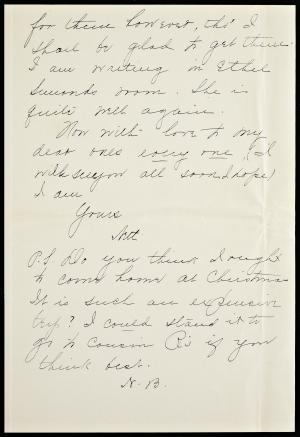 for them however, tho' I
shall be glad to get them.
I am writing in Ethel
Simonds room. She is
quite well again.
Now with love to my
dear ones every one, (I
will see you all soon I hope)
I am
Yours
Nett
P.S. Do you think I ought
to come home at Christmas
It is such an expensive
trip? I could stand it to
go to Cousin R's if you
think best.
N. B.